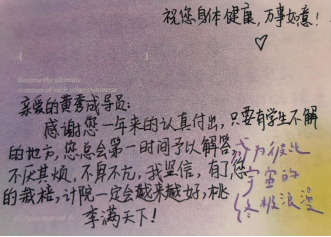 祝您身体健康，万事如意！
become the ultimate
romance of each other's universe
亲爱的黄秀成导员：
感谢您一年来的认真付出，只要有学生不解
的地方，您总会第一时间予以解答，
不厌其烦，不屑不亢，我坚信，有了您
的栽培，计院一定会越来越好，桃
李满天下！
成为彼此
宇宙的
终极浪漫